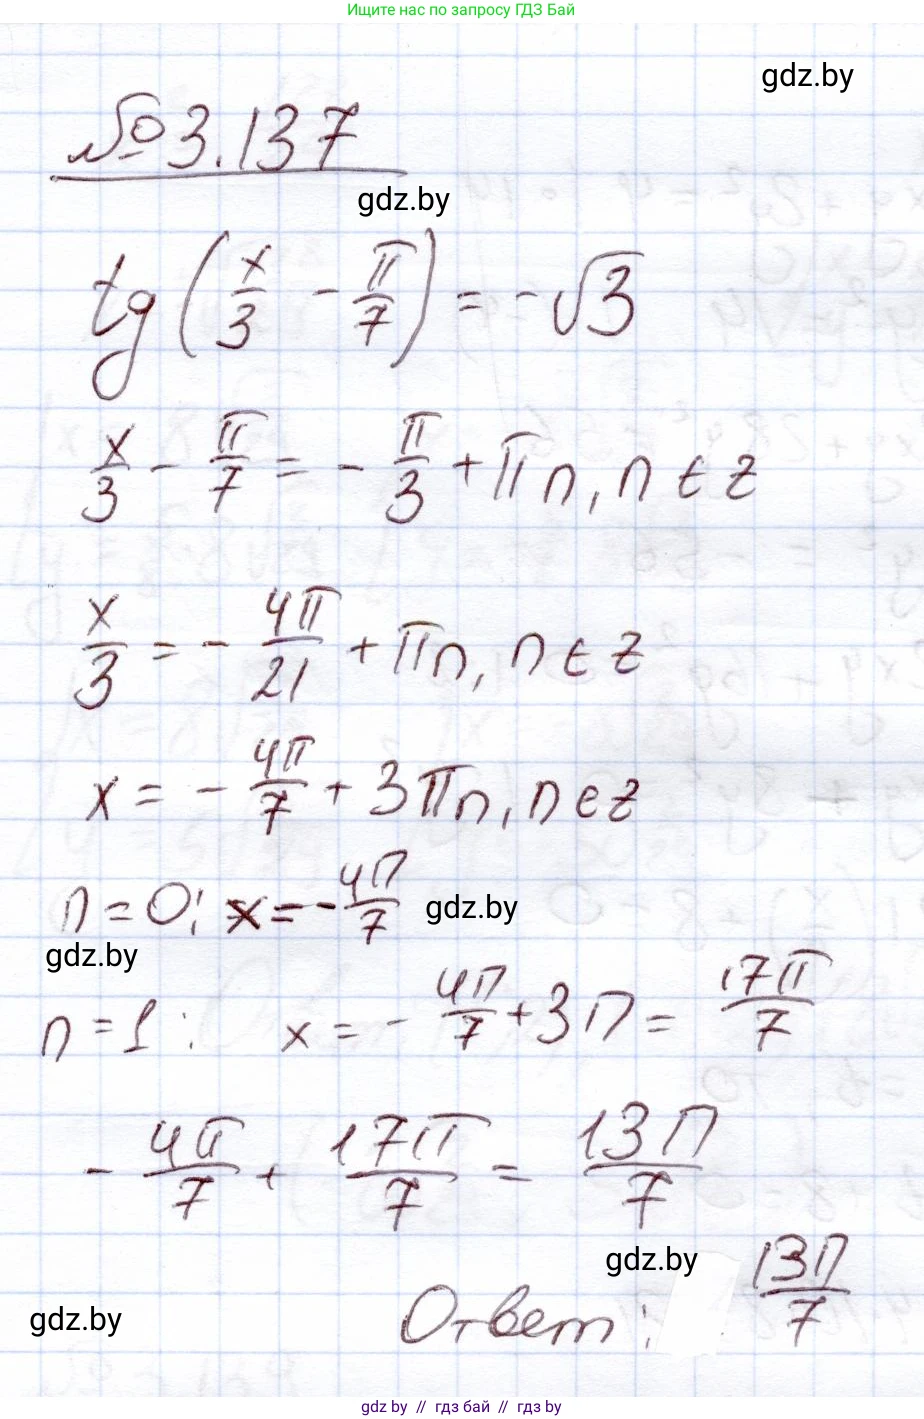 Ищите нас по запросу ГДЗ Бай
gdz.by
№ 3.137
gdz.by
tg(x/3 - π/7) = -√3
x/3 - π/7 = -π/3 + πn, n ∈ z
x/3 = -4π/21 + πn, n ∈ z
x = -4π/7 + 3πn, n ∈ z
n = 0: x = -4π/7
gdz.by
gdz.by
n = 1: x = -4π/7 + 3π = 17π/7
-4π/7 + 17π/7 = 13π/7
gdz.by
Ответ: 13π/7
gdz.by
gdz.by // гдз бай // гдз by